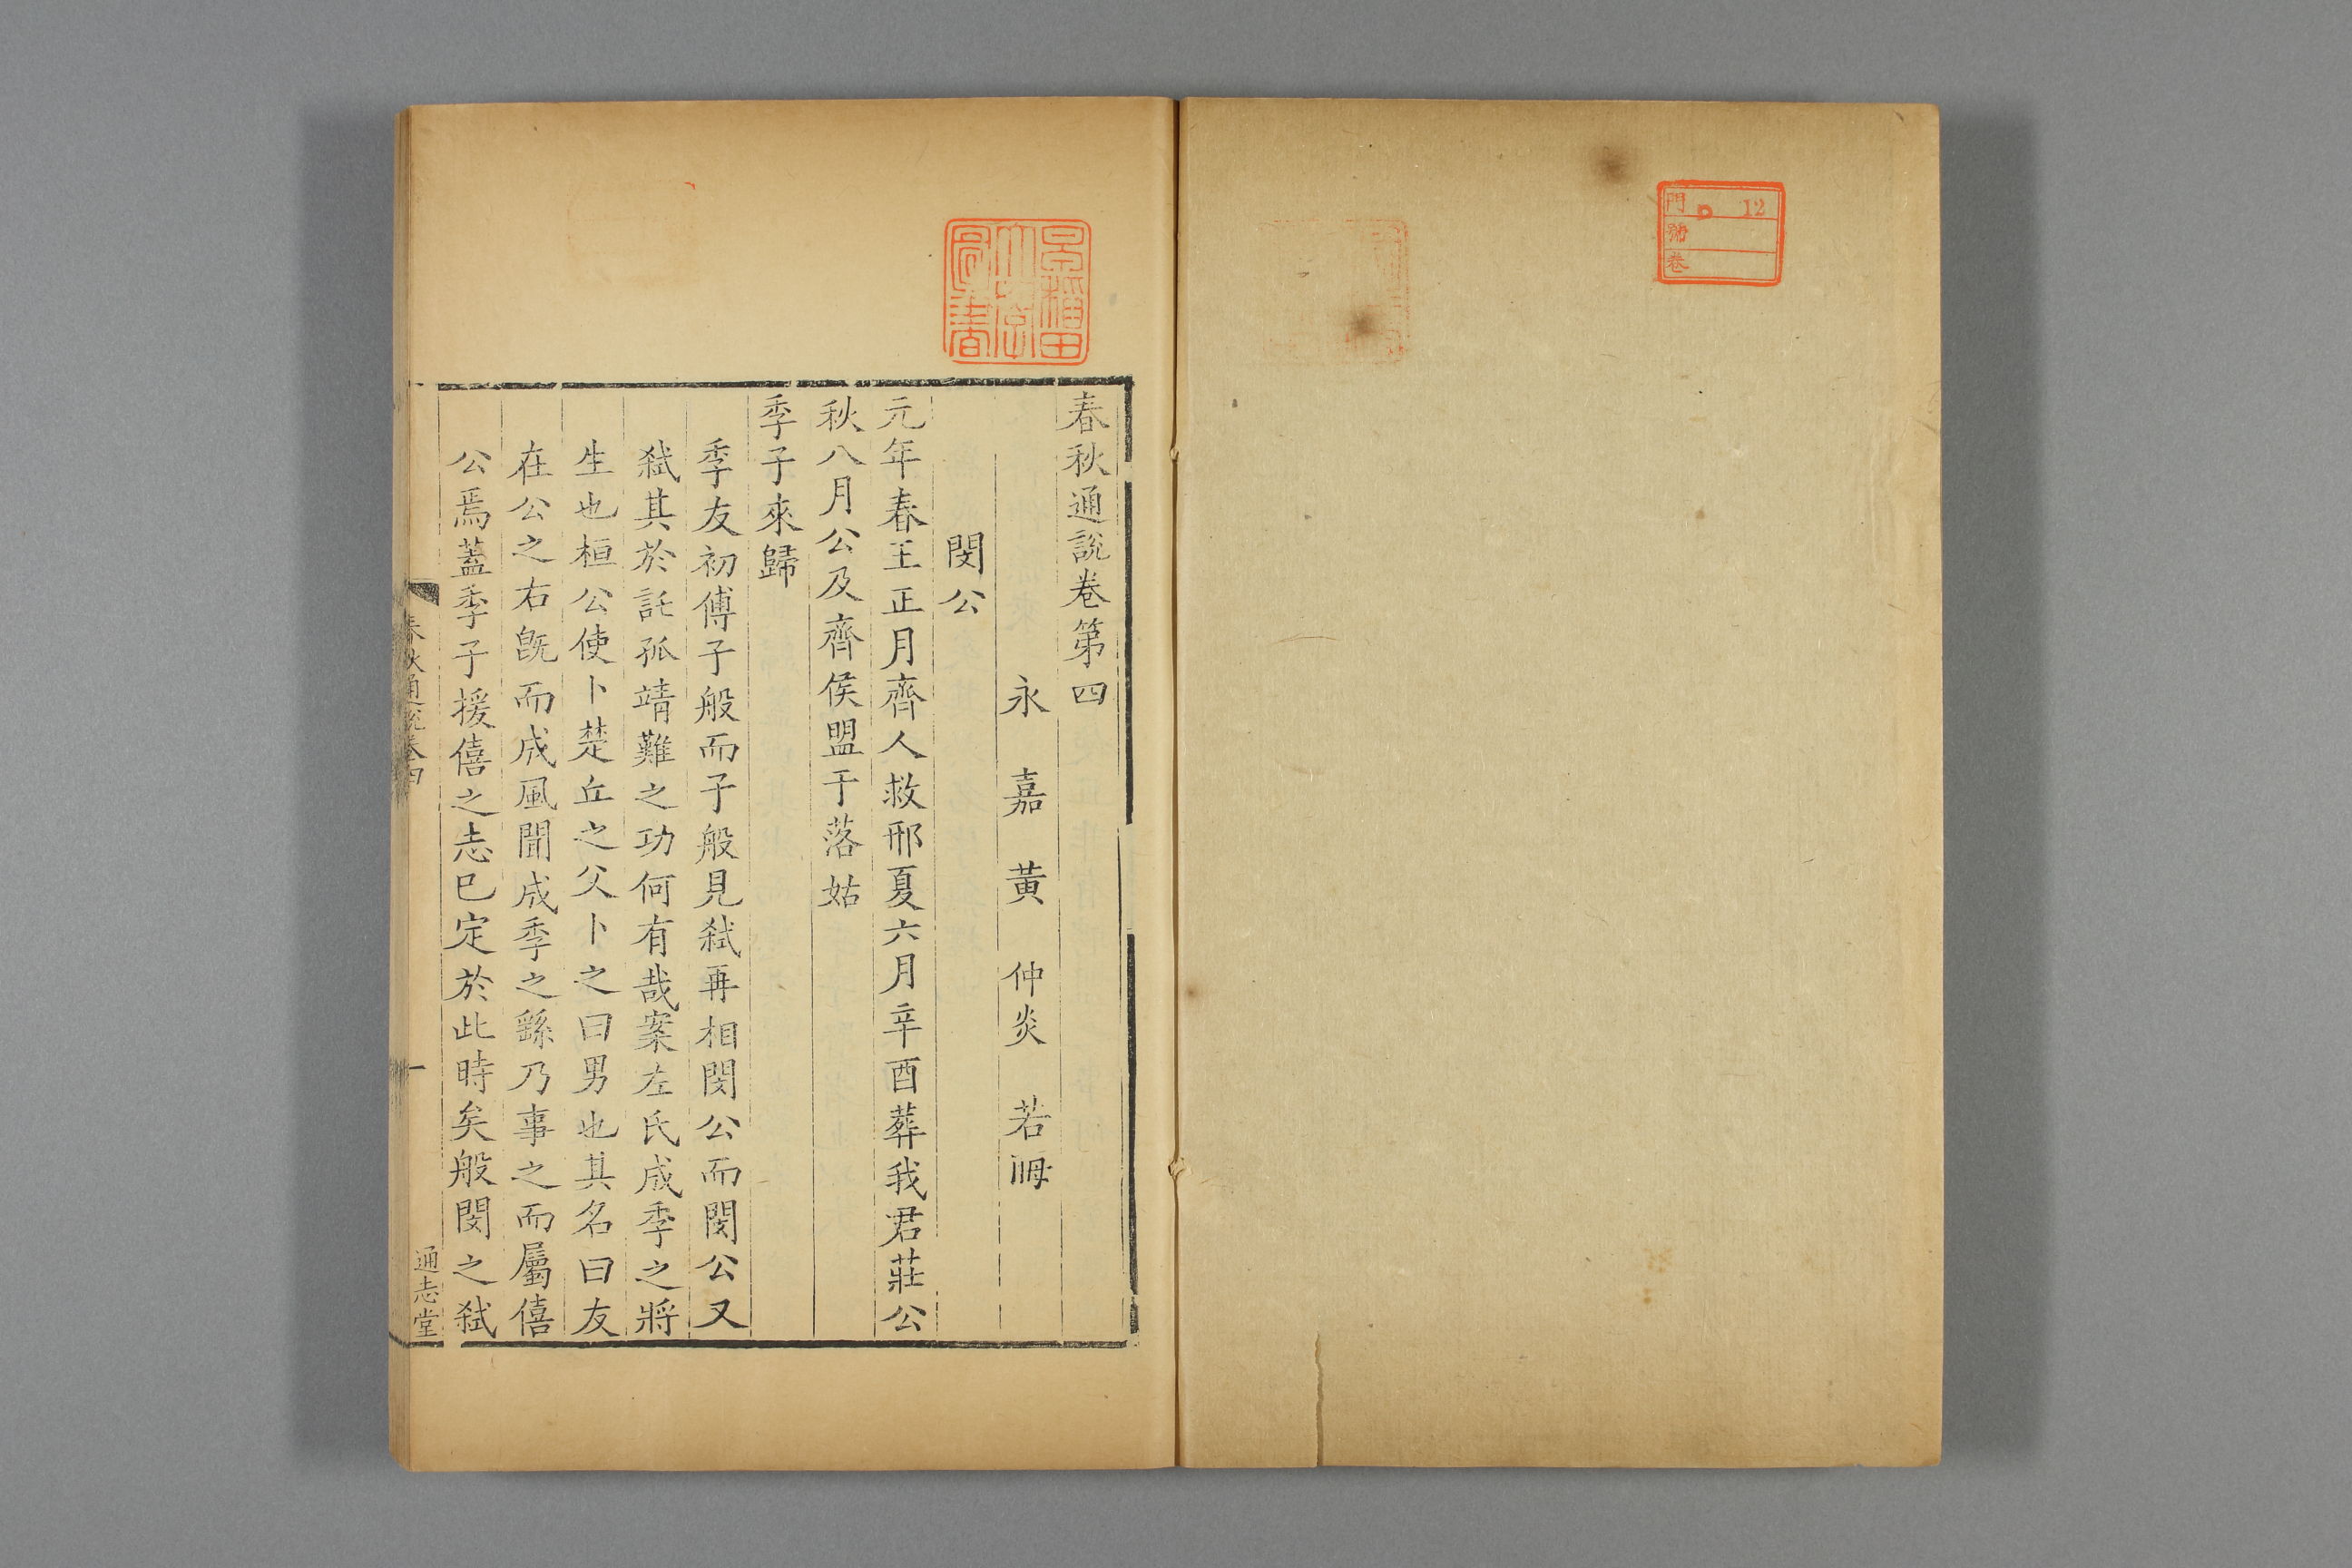 門 口 12
號
卷
早稻田
大學
圖書
春秋通說卷第四
永嘉黄仲炎若晦
閔公
元年春王正月齊人救邢夏六月辛酉葬我君莊公
秋八月公及齊侯盟于落姑
季子來歸
季友初傅子般而子般見弑再相閔公而閔公又
弑其於託孤靖難之功何有哉案左氏成季之將
生也桓公使卜楚丘之父卜之曰男也其名曰友
在公之右旣而成風聞成季之繇乃事之而屬僖
公焉蓋季子援僖之志已定於此時矣般閔之弑
春秋通說卷四
一
通志堂